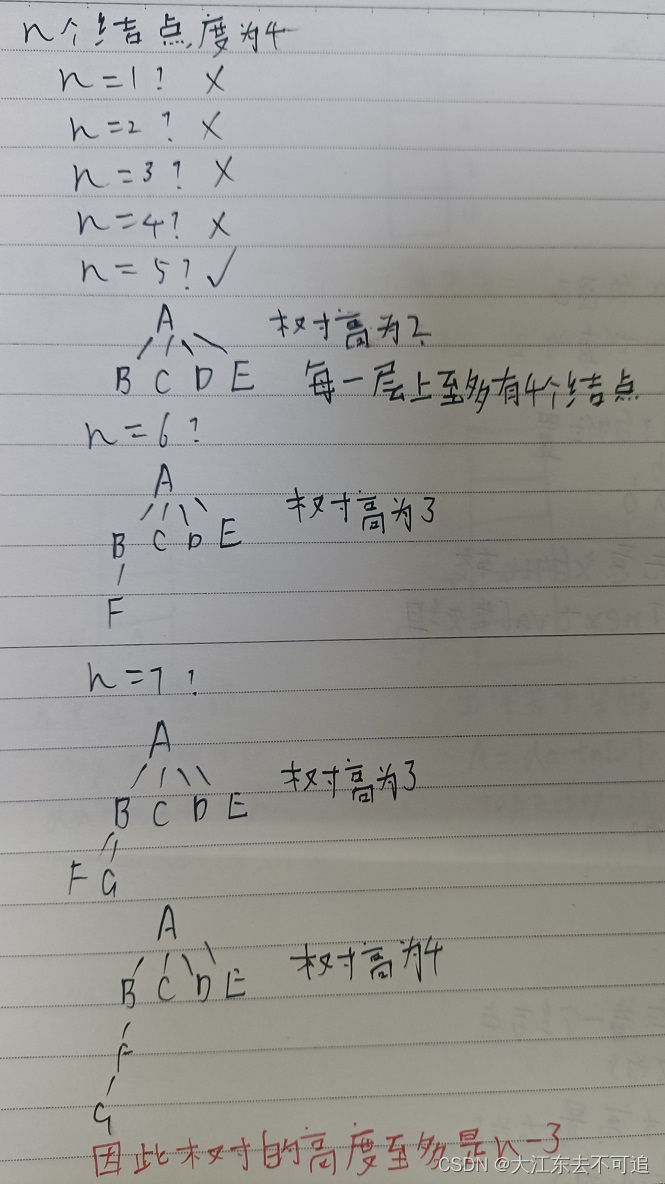 n个结点,度为4
n=1? ×
n=2? ×
n=3? ×
n=4? ×
n=5? √
A
树高为2
B C D E
每一层上至多有4个结点
n=6?
A
树高为3
B C D E
F
n=7?
A
树高为3
B C D E
F G
A
树高为4
B C D E
F
G
因此树的高度至多是n-3
CSDN @大江东去不可追